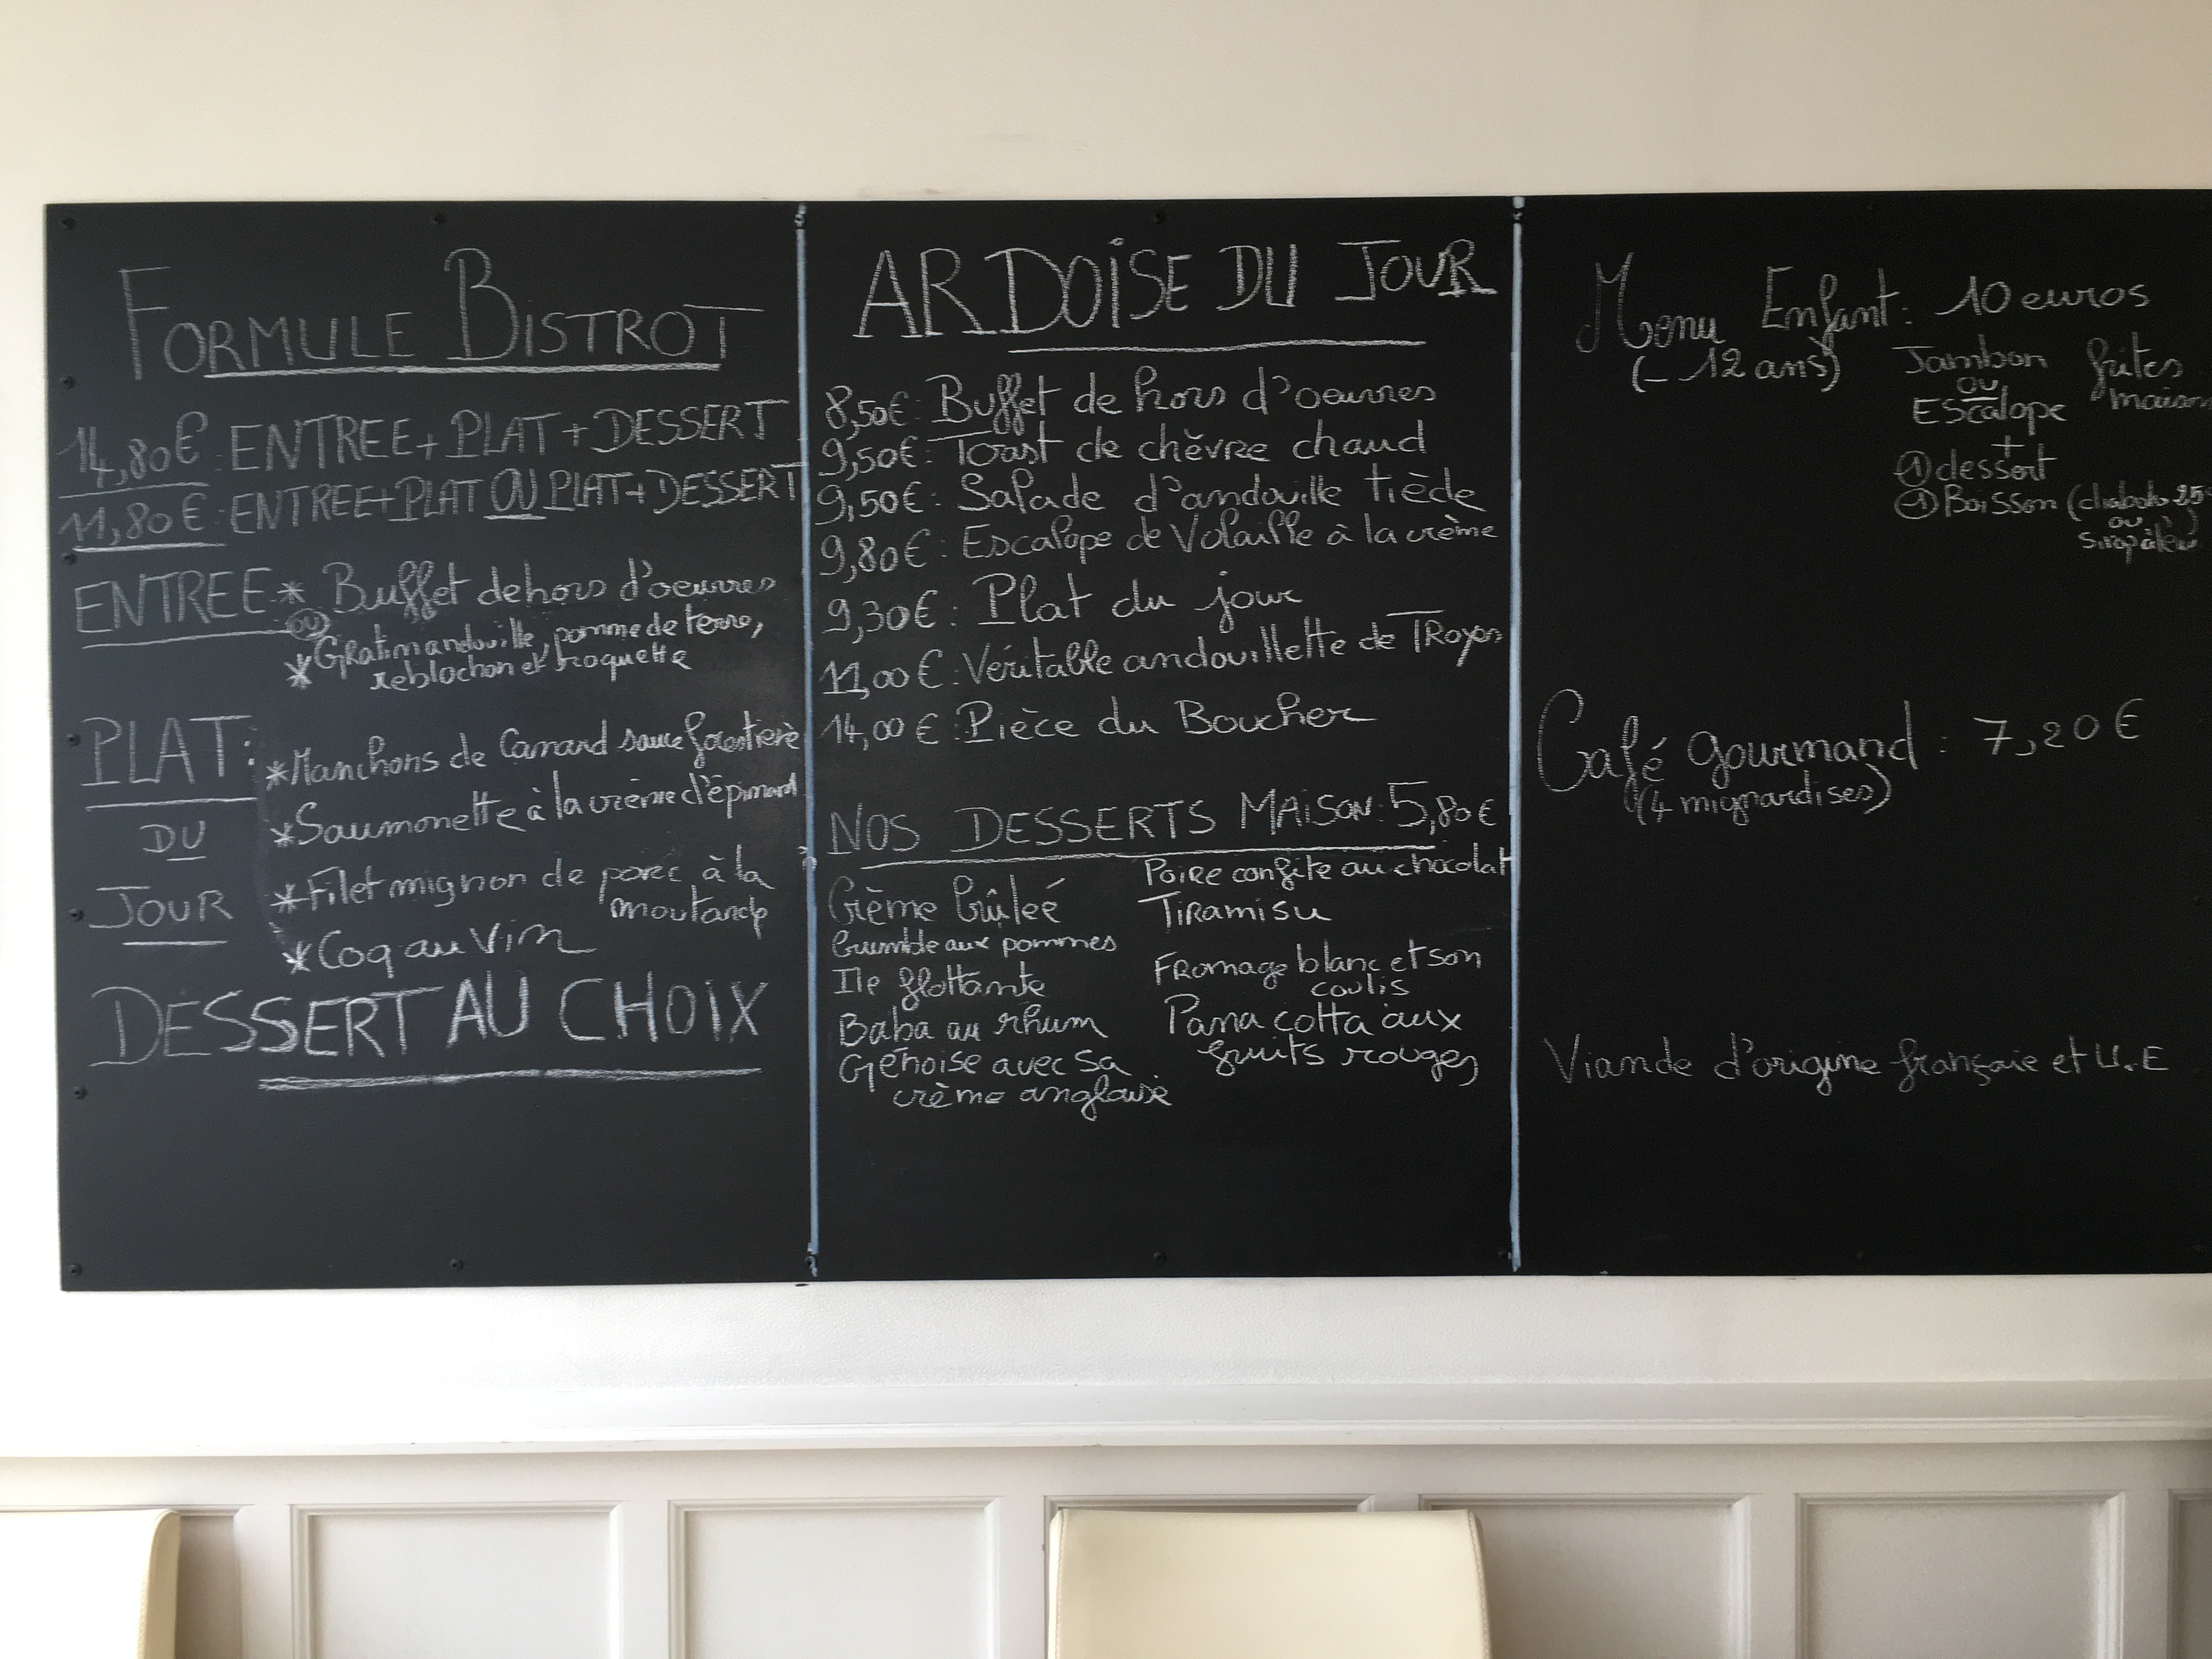 FORMULE BISTROT
14,80€: ENTREE+PLAT+DESSERT
11,80€: ENTREE+PLAT OU PLAT+DESSERT
ENTREE* Buffet de hors d'oeuvres
ou
*Gratin andouille, pomme de terre,
reblochon et roquette
PLAT:
DU
JOUR
*Manchons de Canard sauce forestière
*Saumonette à la crème d'épinard
*Filet mignon de porc à la
moutarde
*Coq au Vin
DESSERT AU CHOIX
ARDOISE DU JOUR
8,50€: Buffet de hors d'oeuvres
9,50€: Toast de chèvre chaud
9,50€: Salade d'andouille tiède
9,80€: Escalope de Volaille à la crème
9,30€: Plat du jour
11,00€: Véritable andouillette de TRoyes
14,00€: Pièce du Boucher
NOS DESSERTS MAISON: 5,80€
Crème brûleé
Crumble aux pommes
Ile flottante
Baba au rhum
Génoise avec sa
crème anglaise
Poire confite au chocolat
Tiramisu
Fromage blanc et son
coulis
Pana cotta aux
fruits rouges
Menu Enfant: 10 euros
(- 12 ans)
Jambon frites
ou maison
Escalope
+
1 dessert
1 Boisson (
ou
Café gourmand: 7,20€
(4 mignardises)
Viande d'origine françaie et U.E